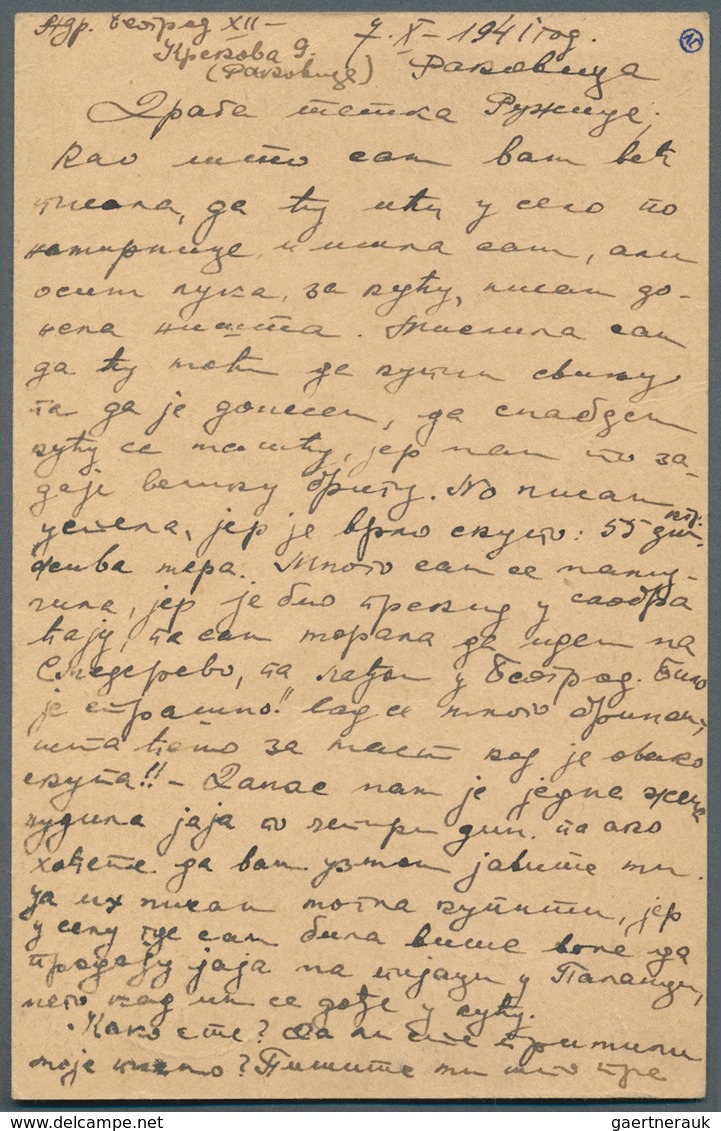 Адр. Београд XII –
7. X – 1941 год.
Крекова 9.
(Раковица) Раковица
Драга тетка Ружице,
Као што сам вам већ
писала, да ћу ићи у село по
намирнице, и ишла сам, али
осим лука, за кућу, нисам до-
нела ништа. Мислила сам
да ћу моћи да купим свињу
па да је донесем, да снабдем
кућу са машћу, јер нам то за-
даје велику бригу. Но нисам
успела, јер је врло скупо: 55 дин.
жива мера. Много сам се наму-
чила, јер је био прекид у саобра
ћају, па сам морала да идем на
Смедерево, па лађом у Београд. Било
је страшно! Сад се много бринем,
шта ћемо за маст кад је овако
скупа!! – Данас нам је једна жена
нудила јаја по четири дин. па ако
хоћете да вам узмем јавите ми.
Ја их нисам могла купити, јер
у селу где сам била више воле да
продају јаја на пијаци у Паланци,
него кад им се дође у кућу.
Како сте? Да ли сте примили
моје писмо? Пишите ми што пре
gaertnerauk